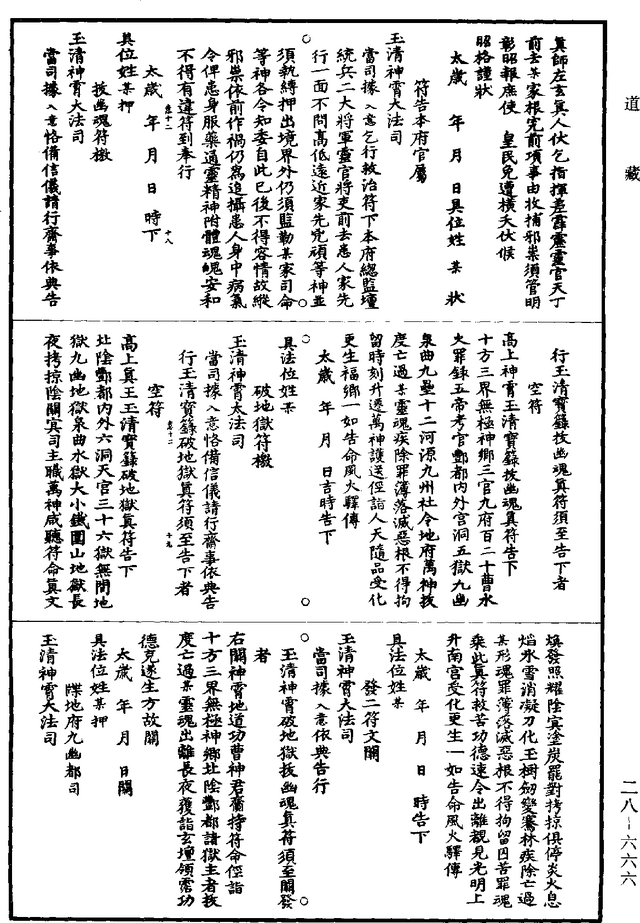 道藏
真師左玄真人伏乞指揮差霹靂靈官天丁
前去某家根究前項事由收捕邪祟須管明
彰昭報庶使　皇民免遭橫夭伏候
昭格謹狀
太歲　年　月　日具位姓　某　狀
符告本府官屬
玉清神霄大法司
當司據入意乞行救治符下本府總監壇
統兵二大將軍靈官將吏前去患人家先
行一面不問高低遠近家先兇頑等神並
須執縛押出境界外仍須監勒某家司命
等神各令知委自此已後不得容情故縱
邪祟依前作禍仍為追攝患人身中病氣
令俾患身服藥通靈精神附體魂魄安和
不得有違符到奉行
太歲　年　月　日　時下
具位姓某押
拔幽魂符檄
玉清神霄大法司
當司據入意恪備信儀請行齋事依典告
行玉清寶籙拔幽魂真符須至告下者
空符
高上神霄玉清寶籙拔幽魂真符告下
十方三界無極神鄉三官九府百二十曹水
火罪録五帝考官酆都內外宮洞五獄九幽
泉曲九壘十二河源九州社令地府萬神拔
度亡過某靈魂疾除罪簿落滅惡根不得拘
留時刻升遷萬神護送徑詣人天隨品受化
更生福鄉一如告命風火驛傳
太歲　年　月　日吉時告下
具法位姓某
破地獄符檄
玉清神霄大法司
當司據入意恪備信儀請行齋事依典告
行玉清寶籙破地獄真符須至告下者
空符
高上真王玉清寶籙破地獄真符告下
北陰酆都內外六洞天宮三十六獄無間地
獄九幽地獄泉曲水獄大小鐵圍山地獄長
夜拷掠陰關冥司主職萬神咸聽符命真文
煥發照耀陰冥塗炭罷對拷掠俱停炎火息
焰氷雪消凝刀化玉樹劒變騫林疾除亡過
某形魂罪簿落滅惡根不得拘留囚苦罪魂
乘此真符救苦功德速令出離覩見光明上
升南宮受化更生一如告命風火驛傳
太歲　年　月　日　時告下
具法位姓某
發二符文關
玉清神霄大法司
當司據入意依典告行
玉清神霄破地獄拔幽魂真符須至關發
者
右關神霄地道功曹神君齎持符命徑詣
十方三界無極神鄉北陰酆都諸獄主者拔
度亡過某靈魂出離長夜獲詣玄壇領霑功
德克遂生方故關
太歲　年　月　日關
具法位姓某押
牒地府九幽都司
玉清神霄大法司
二八-六六六